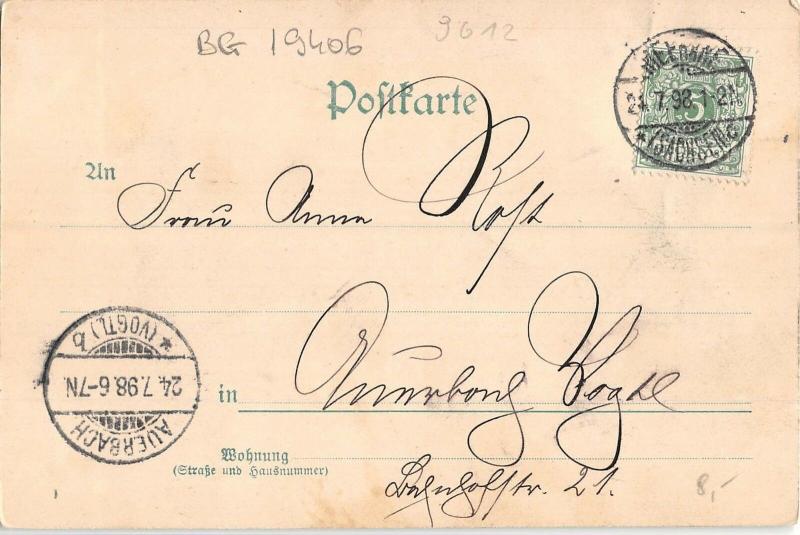 BG 19406
9612
Postkarte
24.7.98.1-2N.
(SACHSEN)
5
An
Frau Anna Rost
(VOGTL.) b
24.7.98.6-7N.
AUERBACH
in
Auerbach Vogtl
Wohnung
(Straße und Hausnummer)
Bahnhofstr. 21.
8,-